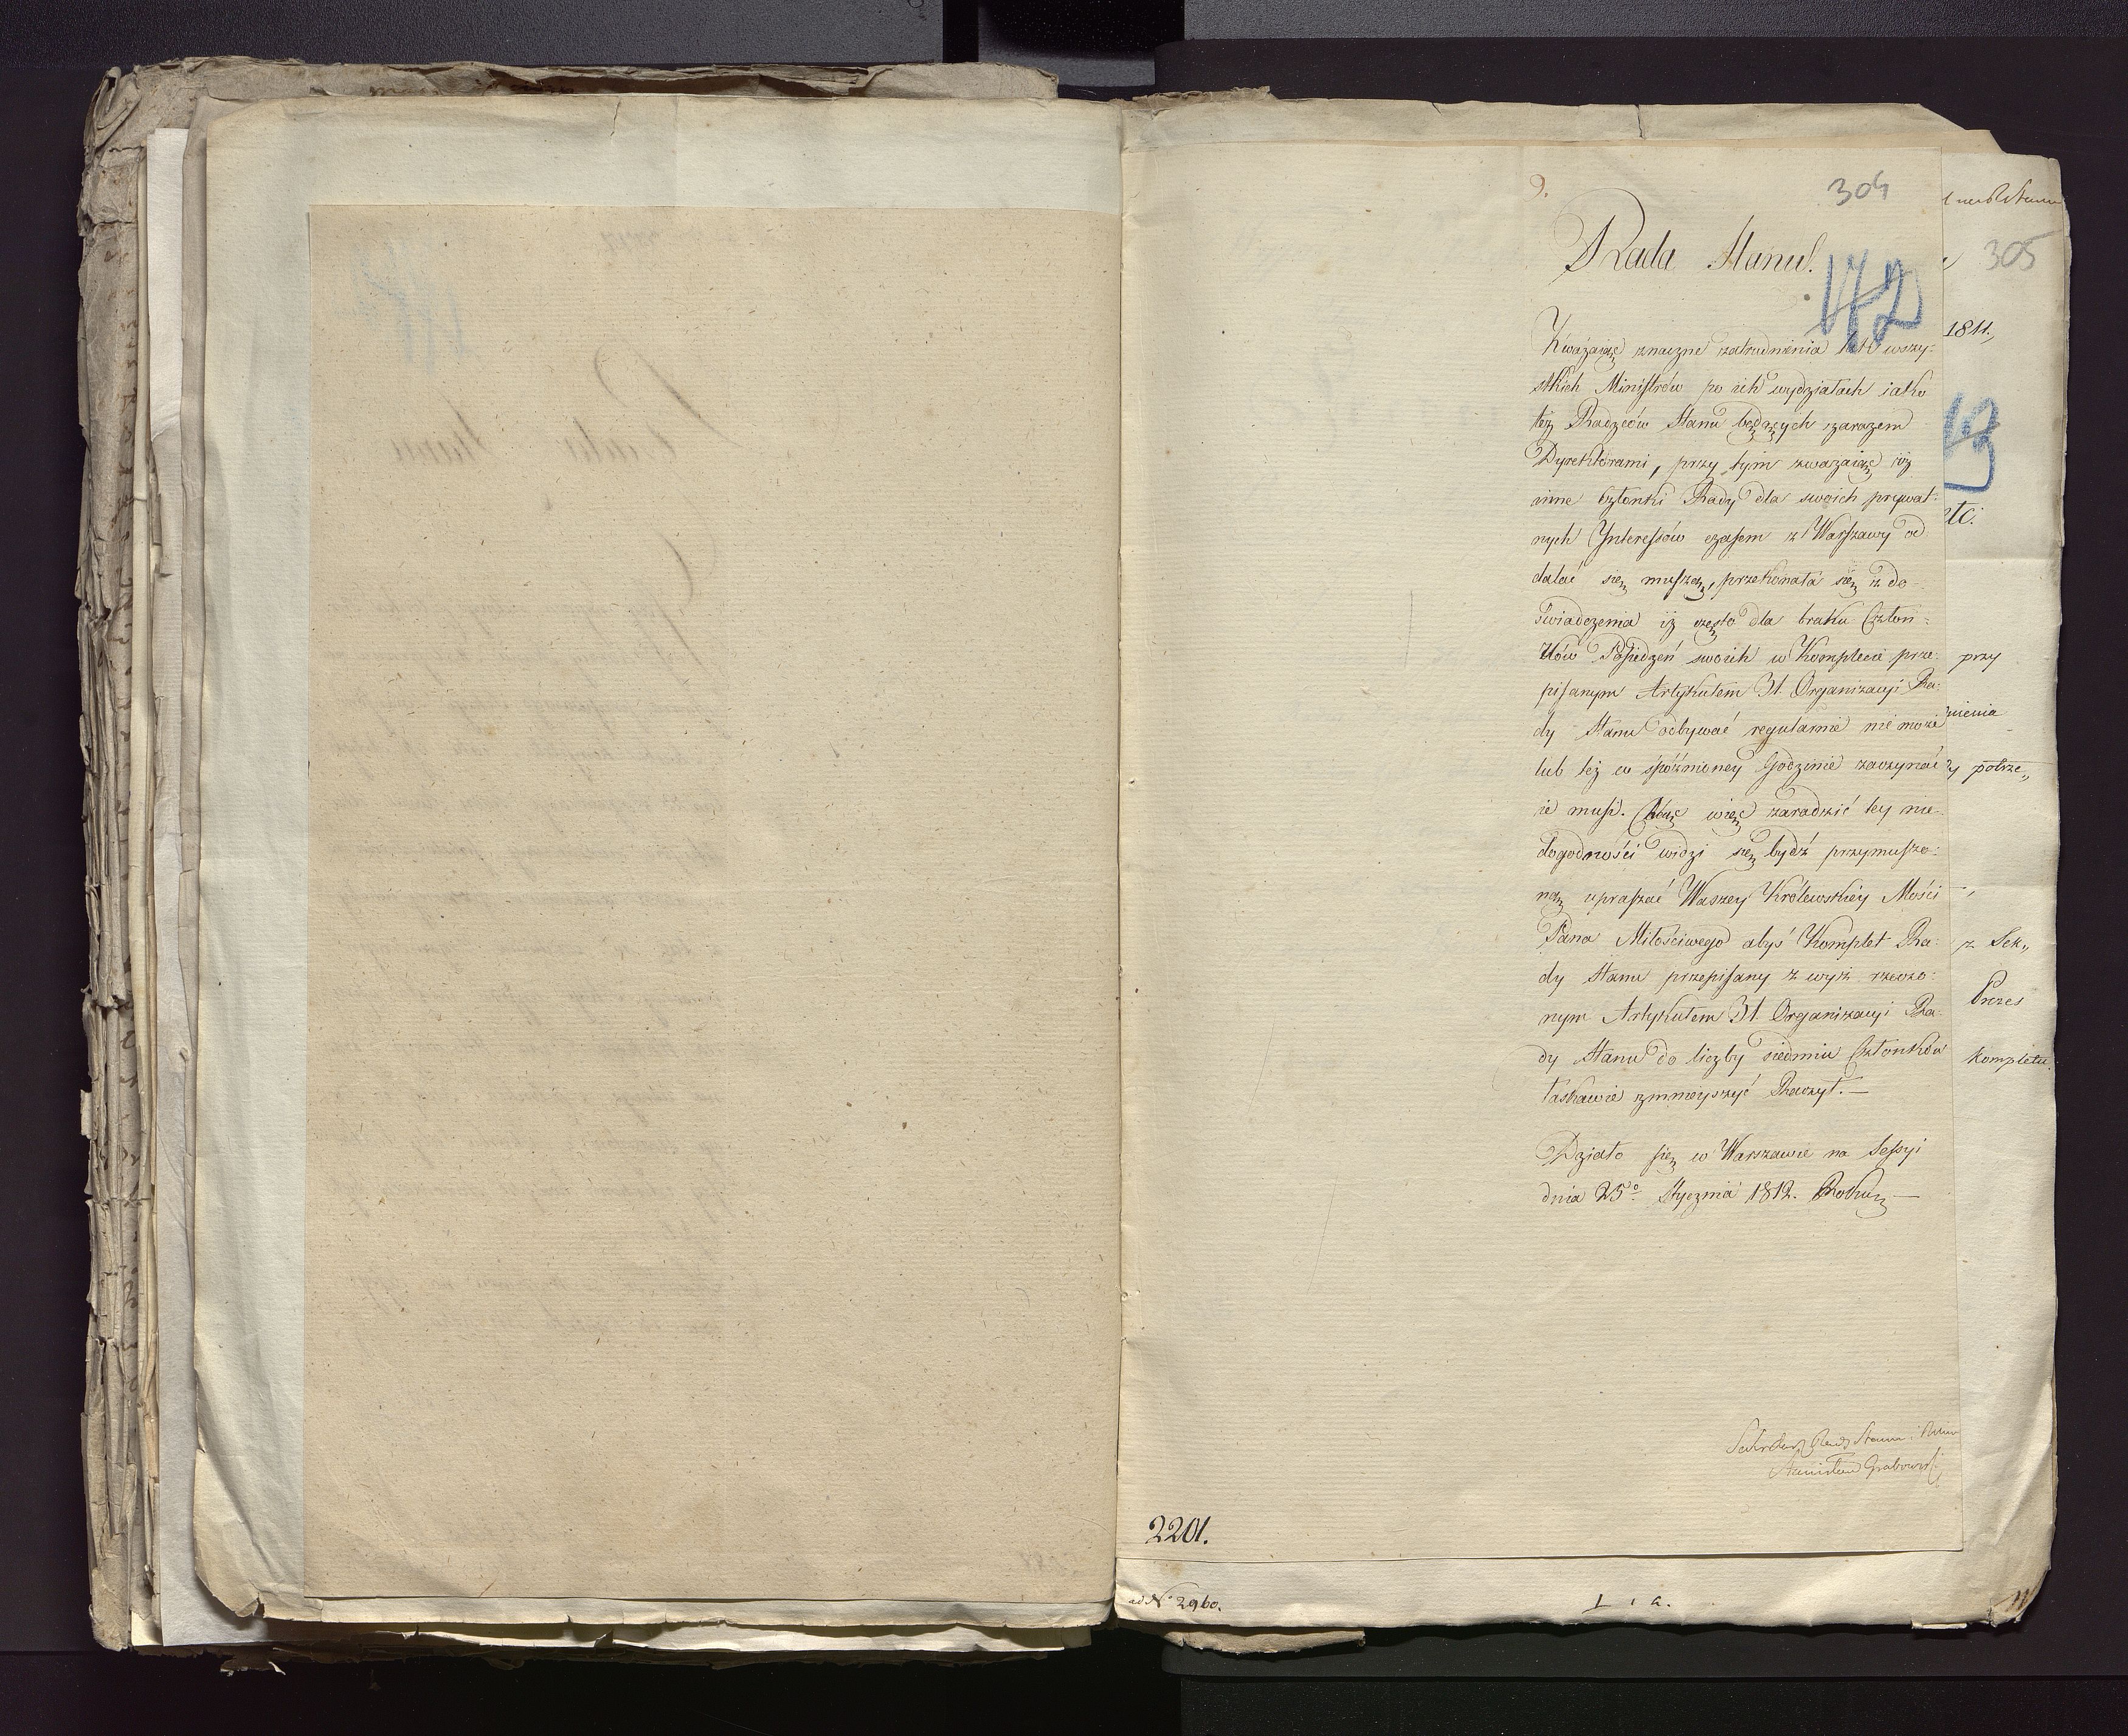 9.
304
Rada Stanu.
172
Zważaiąc znaczne zatrudnienia tak wszy-
stkich Ministrów po ich wydziałach iako
też Radzców Stanu będących zarazem
Dyrektorami, przy tym zważaiąc iż
inne Członki Rady dla swoich prywat-
nych Interessów czasem z Warszawy od
dalać się muszą, przekonała się z do-
świadczenia iż często dla braku Człon-
ków Posiedzeń swoich w Komplecie prze-
pisanym Artykułem 31. Organizacyi Ra-
dy Stanu odbywać regularnie nie może
lub też w spóźnioney Godzinie zaczynać
ie musi. Chcąc więc zaradzić tey nie-
dogodności widzi się bydź przymuszo-
ną upraszać Waszey Królewskiey Mości
Pana Miłościwego abyś Komplet Ra-
dy Stanu przepisany z wyż rzeczo-
nym Artykułem 31. Organizacyi Ra-
dy Stanu do liczby siedmiu Członków
łaskawie zmnieyszyć Raczył.—
Działo się w Warszawie na Sessyi
dnia 25º Stycznia 1812. Roku —
Sekretarz Rady Stanu i
Stanisław Grabowski
2201.
ad Nº 2960.
305
1811.,
etc.
przy
nienia
y potrze„
z Sek„
Prezes
Kompletu.